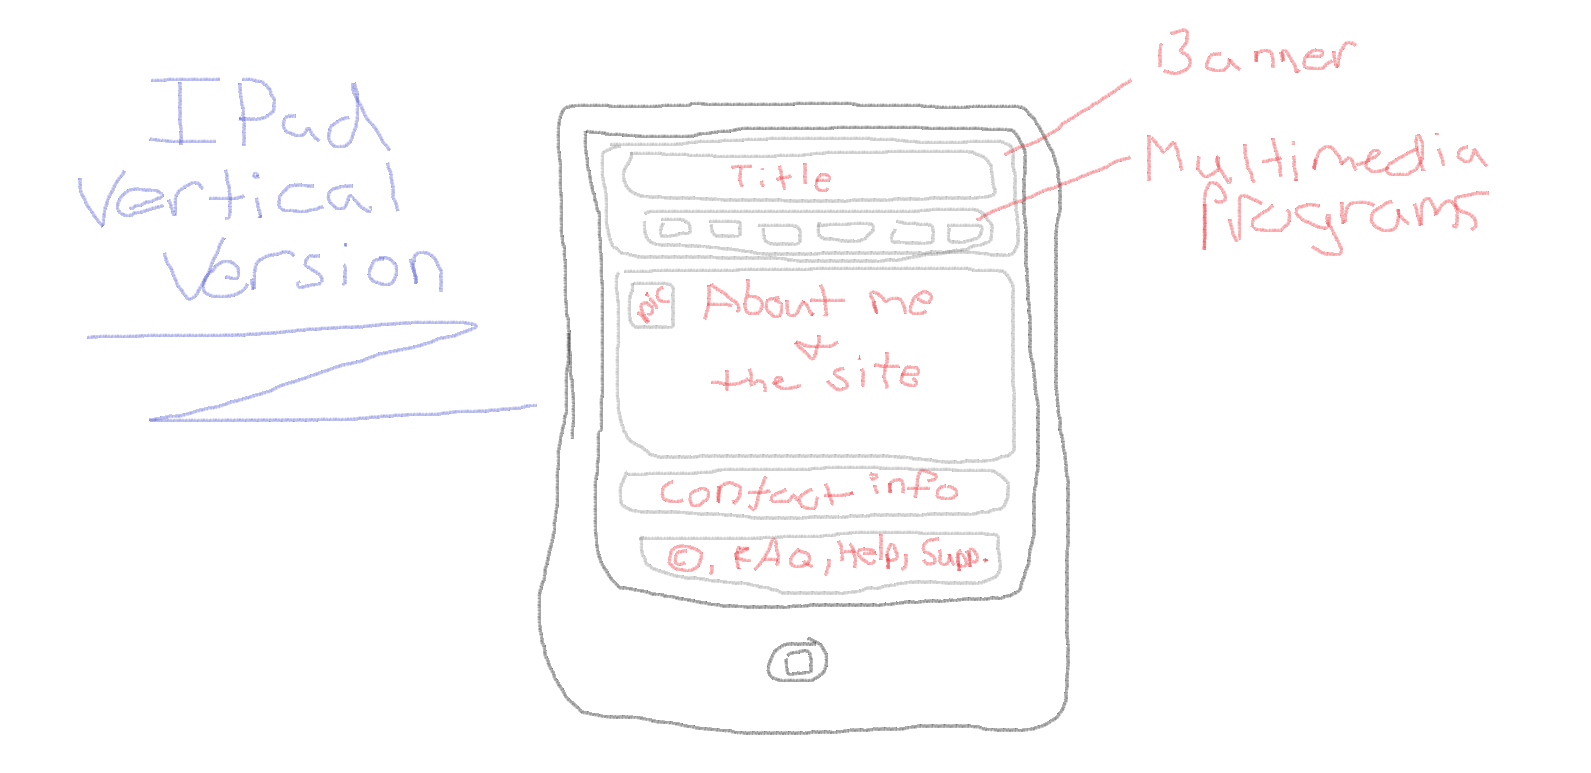 IPad
Vertical
Version
Banner
Multimedia
Programs
Title
pic
About me
+
the site
Contact info
©, FAQ, Help, Supp.